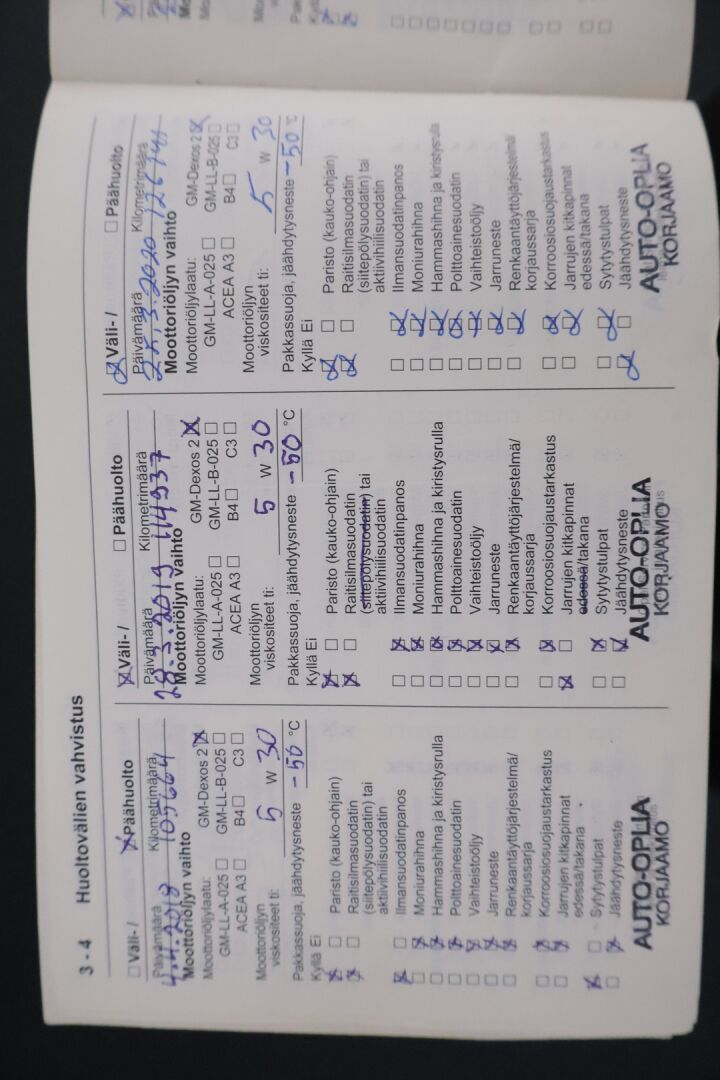 3 - 4 Huoltovälien vahvistus
☐ Väli- / ☒ Päähuolto
Päivämäärä Kilometrimäärä
4.4.2018 105664
Moottoriöljyn vaihto
Moottoriöljylaatu: GM-Dexos 2 ☒
GM-LL-A-025 ☐ GM-LL-B-025 ☐
ACEA A3 ☐ B4 ☐ C3 ☐
Moottoriöljyn
viskositeet ti: 5 W 30
Pakkassuoja, jäähdytysneste -50 °C
Kyllä Ei
☒ ☐ Paristo (kauko-ohjain)
☒ ☐ Raitisilmasuodatin
(siitepölysuodatin) tai
aktiivihiilisuodatin
☒ ☐ Ilmansuodatinpanos
☐ ☒ Moniurahihna
☐ ☒ Hammashihna ja kiristysrulla
☐ ☒ Polttoainesuodatin
☐ ☒ Vaihteistoöljy
☐ ☒ Jarruneste
☐ ☒ Renkaantäyttöjärjestelmä/
korjaussarja
☐ ☒ Korroosiosuojaustarkastus
☐ ☒ Jarrujen kitkapinnat
edessä/takana
☒ ☐ Sytytystulpat
☐ ☒ Jäähdytysneste
AUTO-OPLIA
KORJAAMO
☒ Väli- / ☐ Päähuolto
Päivämäärä Kilometrimäärä
28.3.2019 114937
Moottoriöljyn vaihto
Moottoriöljylaatu: GM-Dexos 2 ☒
GM-LL-A-025 ☐ GM-LL-B-025 ☐
ACEA A3 ☐ B4 ☐ C3 ☐
Moottoriöljyn
viskositeet ti: 5 W 30
Pakkassuoja, jäähdytysneste -50 °C
Kyllä Ei
☒ ☐ Paristo (kauko-ohjain)
☒ ☐ Raitisilmasuodatin
(siitepölysuodatin) tai
aktiivihiilisuodatin
☐ ☒ Ilmansuodatinpanos
☐ ☒ Moniurahihna
☐ ☒ Hammashihna ja kiristysrulla
☐ ☒ Polttoainesuodatin
☐ ☒ Vaihteistoöljy
☐ ☒ Jarruneste
☐ ☒ Renkaantäyttöjärjestelmä/
korjaussarja
☐ ☒ Korroosiosuojaustarkastus
☒ ☐ Jarrujen kitkapinnat
edessä/takana
☐ ☒ Sytytystulpat
☐ ☒ Jäähdytysneste
AUTO-OPLIA
KORJAAMO
☒ Väli- / ☐ Päähuolto
Päivämäärä Kilometrimäärä
25.3.2020
Moottoriöljyn vaihto
Moottoriöljylaatu: GM-Dexos 2 ☒
GM-LL-A-025 ☐ GM-LL-B-025 ☐
ACEA A3 ☐ B4 ☐ C3 ☐
Moottoriöljyn
viskositeet ti: 5 W 30
Pakkassuoja, jäähdytysneste -50 °C
Kyllä Ei
☒ ☐ Paristo (kauko-ohjain)
☒ ☐ Raitisilmasuodatin
(siitepölysuodatin) tai
aktiivihiilisuodatin
☐ ☒ Ilmansuodatinpanos
☐ ☒ Moniurahihna
☐ ☒ Hammashihna ja kiristysrulla
☐ ☒ Polttoainesuodatin
☐ ☒ Vaihteistoöljy
☐ ☒ Jarruneste
☐ ☒ Renkaantäyttöjärjestelmä/
korjaussarja
☐ ☒ Korroosiosuojaustarkastus
☐ ☒ Jarrujen kitkapinnat
edessä/takana
☐ ☒ Sytytystulpat
☒ ☐ Jäähdytysneste
AUTO-OPLIA
KORJAAMO